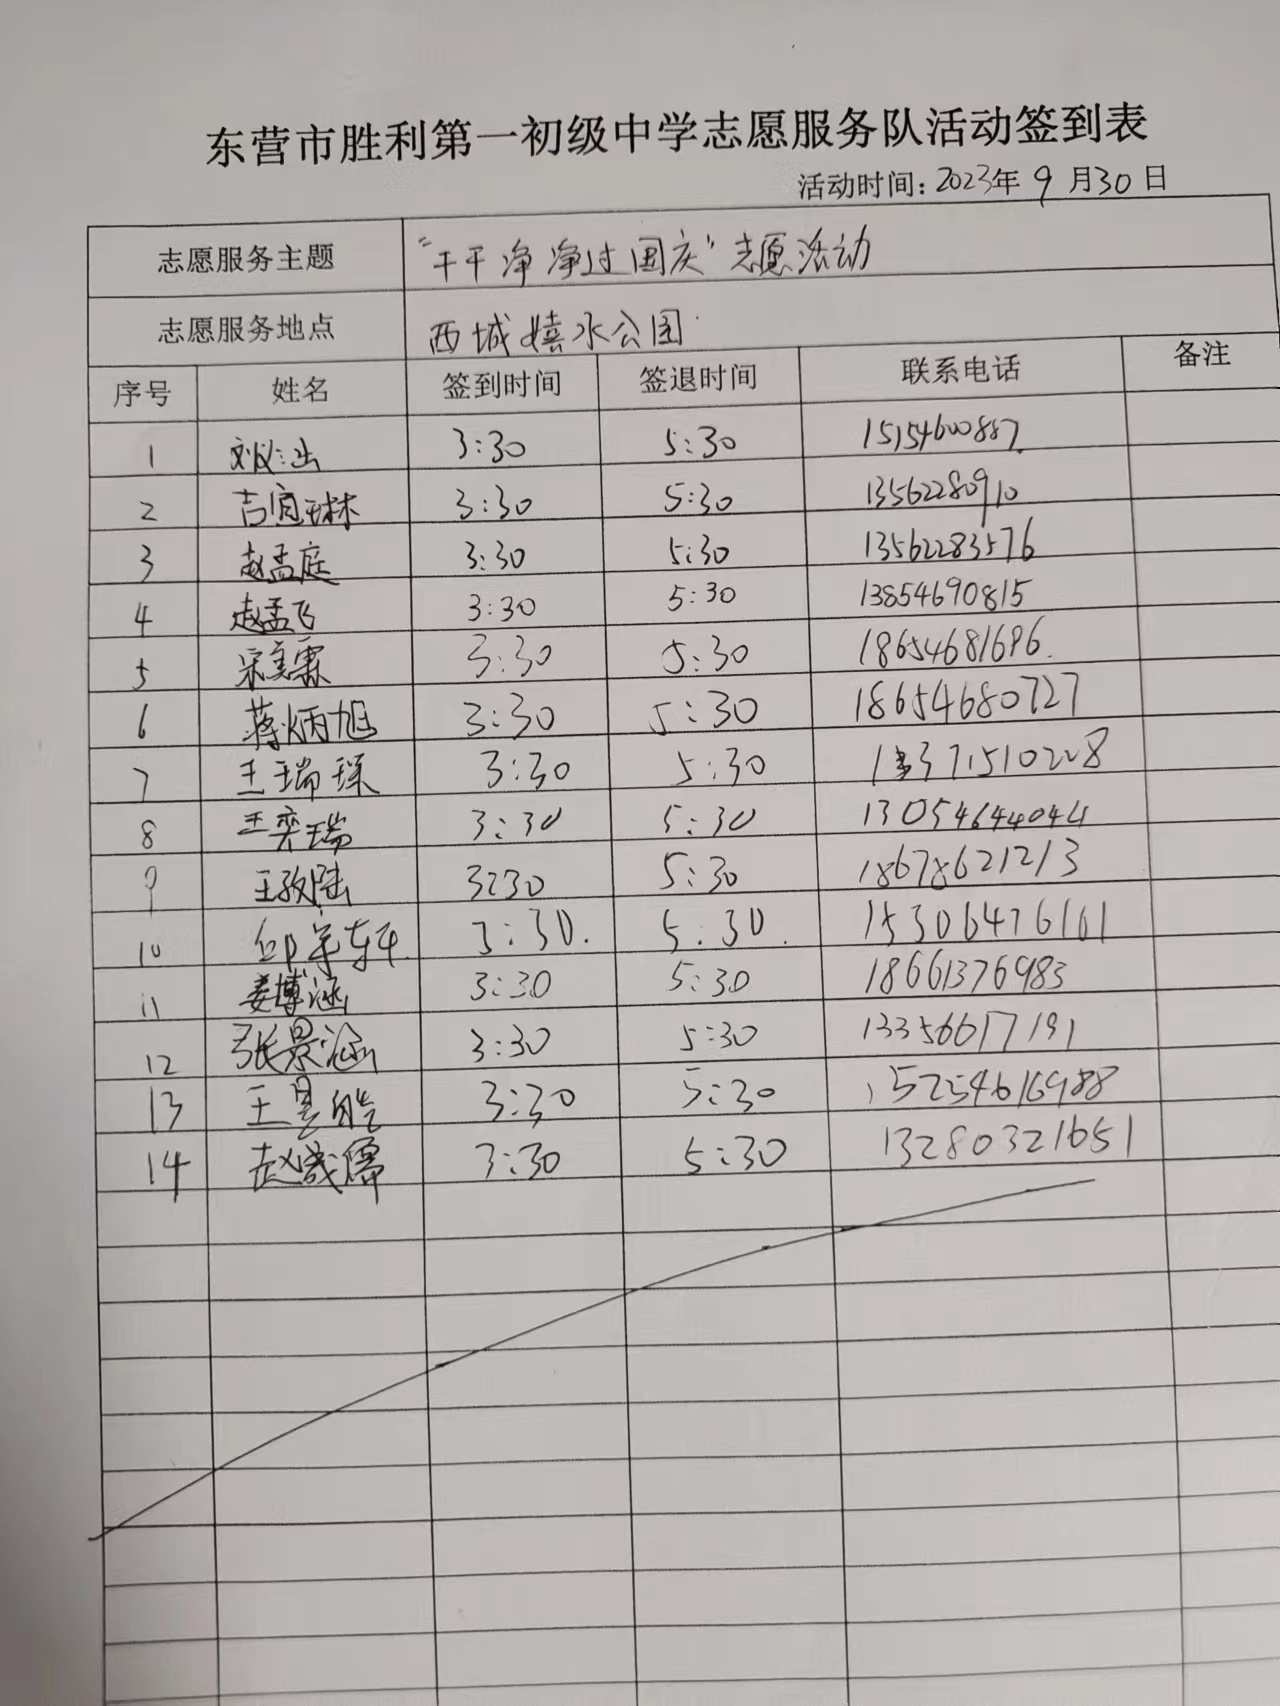 东营市胜利第一初级中学志愿服务队活动签到表
活动时间：2023年 9 月30日
志愿服务主题 “干干净净过国庆”志愿活动
志愿服务地点 西城嬉水公园
序号 姓名 签到时间 签退时间 联系电话 备注
1 3:30 5:30 15154600887
2 吉宜琳 3:30 5:30 13562280910
3 赵孟庭 3:30 5:30 13562283576
4 赵孟飞 3:30 5:30 13854690815
5 宋美霖 3:30 5:30 18654681696
6 蒋炳旭 3:30 5:30 18654680727
7 王瑞琛 3:30 5:30
8 王奕瑞 3:30 5:30 13054644044
9 3:30 5:30 18678621213
10 3:30. 5:30. 15306476161
11 姜博涵 3:30 5:30 18661376983
12 张景涵 3:30 5:30 13356617191
13 王昱皓 3:30 5:30 15254616988
14 3:30 5:30 13280321651